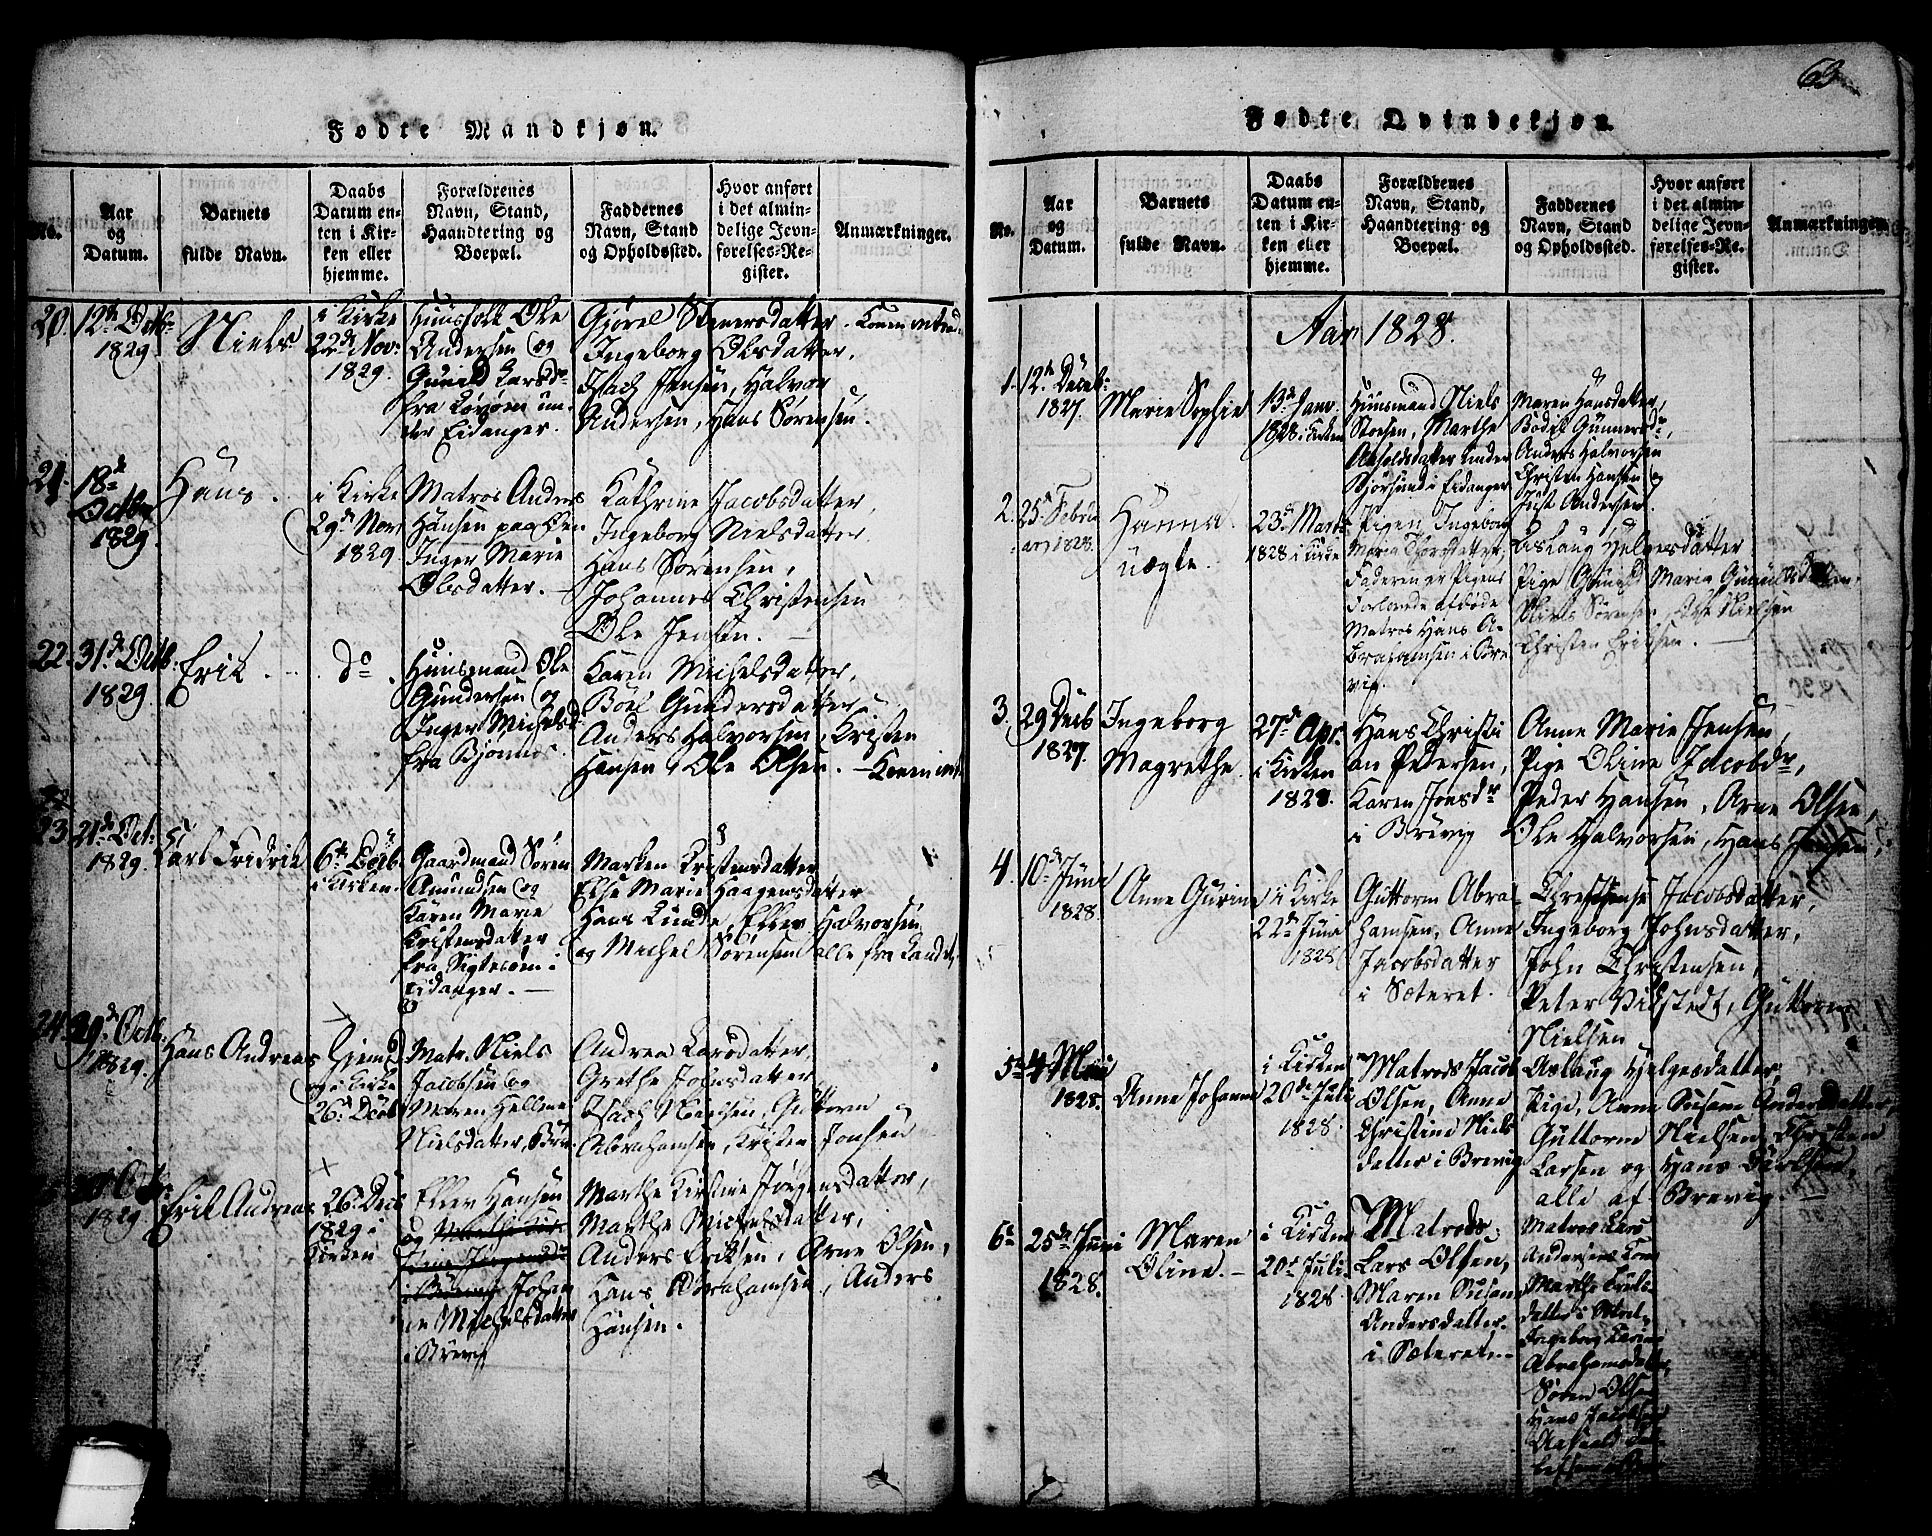 63
Fødte Mandkjøn.
No.
Aar
og
Datum.
Barnets
fulde Navn.
Daabs
Datum en-
ten i Kir-
ken eller
hjemme.
Forældrenes
Navn, Stand,
Haandtering og
Boepæl.
Faddernes
Navn, Stand
og Opholdssted.
Hvor anført
i det almin-
delige Jevn-
førelses-Re-
gister.
Anmærkninger.
20.
12te Octb.
1829.
Niels
i Kirke
22de Nov:
1829.
Huusfolk Ole
Andersen og
Gunild Larsd.
fra Løvøen un-
der Eidanger.
Gjørel Stenersdatter. Konen introd.
Ingeborg Olsdatter,
Isach Jensen, Halvor
Andersen, Hans Sørensen.
21.
18de
Octbr
1829.
Hans.
i Kirke
29de Nov
1829
Matros Anders
Hansen paa Øen
Inger Marie
Olsdatter.
Kathrine Jacobsdatter,
Ingeborg Nielsdatter
Hans Sørensen,
Johannes Christensen
Ole Jensen.
22.
31de Octb.
1829.
Erik.
do.
Huusmand Ole
Gundersen og
Inger Michelsd.
fra Bjønnes
Karen Michelsdatter,
Boel Gundersdatter
Anders Halvorsen, Kristen
Hansen, Ole Olsen. - Konen intr.
23
21de Oct.
1829.
Carl Fridrik
6te Decb.
i Kirken.
Gaardmand Søren
Amundsen og
Karen Marie
Kristensdatter
fra Sigtesøen i
Eidanger.
Marken Kristensdatter
Else Marie Haagensdatter
Hans Lunde, Ellev Halvorsen
og Michel Sørensen alle fra Landet.
24.
29de Octb.
1829.
Hans Andreas
Hjemd.
og i Kirke
26de Decb
Matr. Niels
Jacobsen og
Maren Hellene
Nielsdatter, Brev.
Andrea Larsdatter,
Grethe Johnsdatter
Isach Nielsen, Guttorm
Abrahamsen, Kristen Jonsen
1829
Erik Andreas
26de Decb
1829 i
Kirken
Ellev Hansen
og
Johan
ne Michelsdatter
i Brevig
Marthe Kirstine Jørgensdatter,
Marthe Michelsdatter,
Anders Eriksen, Arne Olsen,
Hans Abrahamsen, Anders
Hansen.
Fødte Qvindekjøn.
No.
Aar
og
Datum.
Barnets
fulde Navn.
Daabs
Datum en-
ten i Kir-
ken eller
hjemme.
Forældrenes
Navn, Stand,
Haandtering og
Boepæl.
Faddernes
Navn, Stand
og Opholdssted.
Hvor anført
i det almin-
delige Jevn-
førelses-Re-
gister.
Anmærkninger.
Aar 1828.
1.
12te Decb.
1827.
Marie Sophie
13de Janv.
1828 i Kirken
Huusmand Niels
Marthe
Arnoldsdatter under
Bjørsund i Eidanger
Maren Hansdatter,
Bodil Gunnersdr,
Anders Halvorsen
Christen Hansen
Just Andersen.
2.
25de Febru
ar 1828.
Hanna.
uægte.
23de Marts
1828 i Kirke
Pigen Ingeborg
Maria Thorsdatter,
Faderen er Pigens
Forlovede afdøde
Matros Hans A-
brahamsen i Bre
vig.
Aslaug Helgesdatter
Pige Gunild Maria
Niels Sørensen, Ole Nielsen
Christen Eriksen.
3.
29 Decb
1827.
Ingeborg
Magrethe.
27de Apr.
i Kirken
1828.
Hans Christi
an Pedersen,
Karen Jonsdr
i Brevig
Anne Marie Jensen,
Pige Oline Jacobdr,
Peder Hansen, Arne Olsen,
Ole Halvorsen, Hans Hansen,
4.
10de Juni
1828.
Anne Gurine
i Kirke
22de Juni
1828
Guttorm Abra-
hamsen, Anne
Jacobsdatter
i Sæteret.
Christense Jacobsdatter,
Ingeborg Johnsdatter,
John Christensen,
Peter Vilstedt, Guttorm
Nielsen
5te
4 Maii
1828.
Anne Johanne
i Kirken
20de Juli
1828.
Matrods Jacob
Olsen, Anne
Christine Niels
datter i Brevig
Aslaug Hjelgesdatter,
Pige, Anne Susane Andersdatter,
Guttorm Nielsen, Christen
Larsen og Hans Carlsen,
alle af Brevig.
6te
25de Juni
1828.
Maren
Oline.
i Kirken
20de Juli
1828
Matrods
Lars Olsen,
Maren Susan
Andersdatter.
i Sæteret.
Matros Lars
Andersens Kone
Marthe
datter,
Ingeborg Karine
Abrahamsdatter,
Søren Olsen
Hans Jacobsen